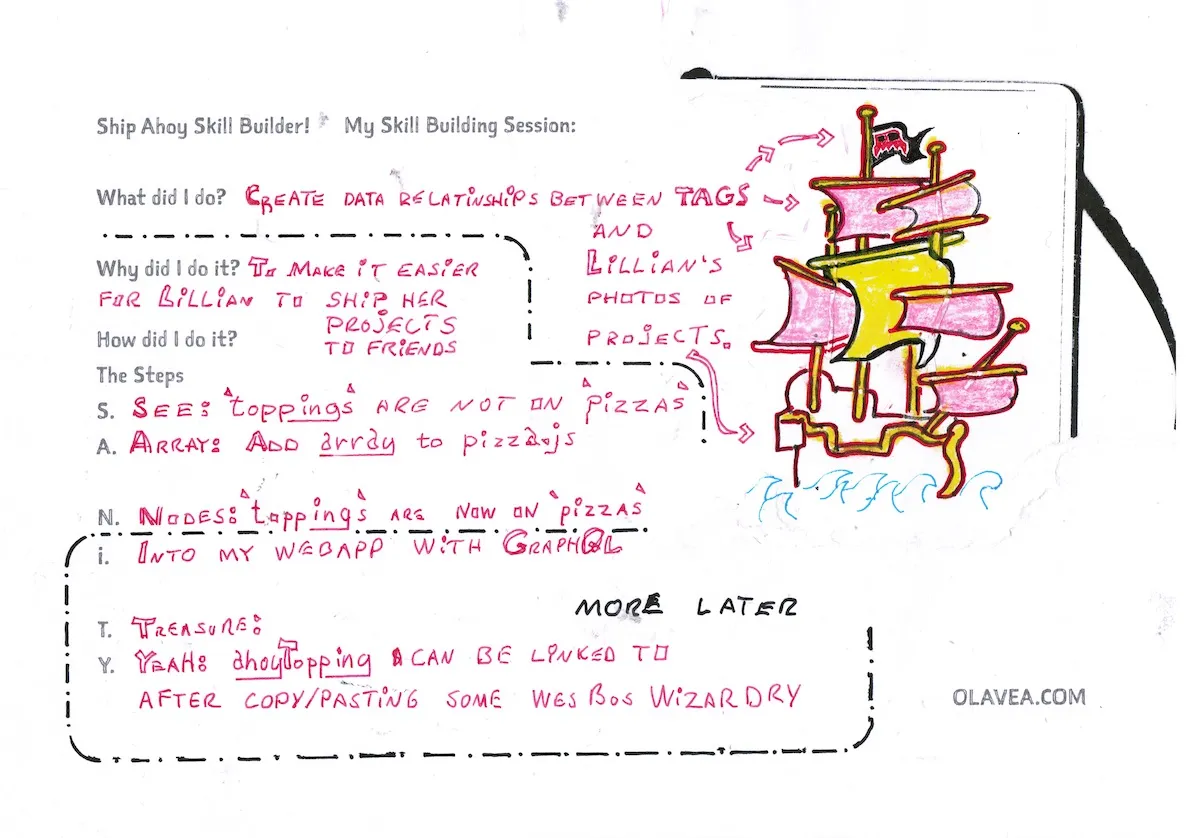 Ship Ahoy Skill Builder! My Skill Building Session:
What did I do? CREATE DATA RELATINSHIPS BETWEEN TAGS
AND
LILLIAN'S
PHOTOS OF
PROJECTS.
Why did I do it? TO MAKE IT EASIER
FOR LILLIAN TO SHIP HER
PROJECTS
TO FRIENDS
How did I do it?
The Steps
S. SEE: 'toppings' ARE NOT ON 'pizzas'
A. ARRAY: ADD array to pizza.js
N. NODES: 'toppings' ARE NOW ON 'pizzas'
i. INTO MY WEBAPP WITH GRAPHQL
MORE LATER
T. TREASURE:
Y. YEAH: ahoyTopping CAN BE LINKED TO
AFTER COPY/PASTING SOME WES BOS WIZARDRY
OLAVEA.COM